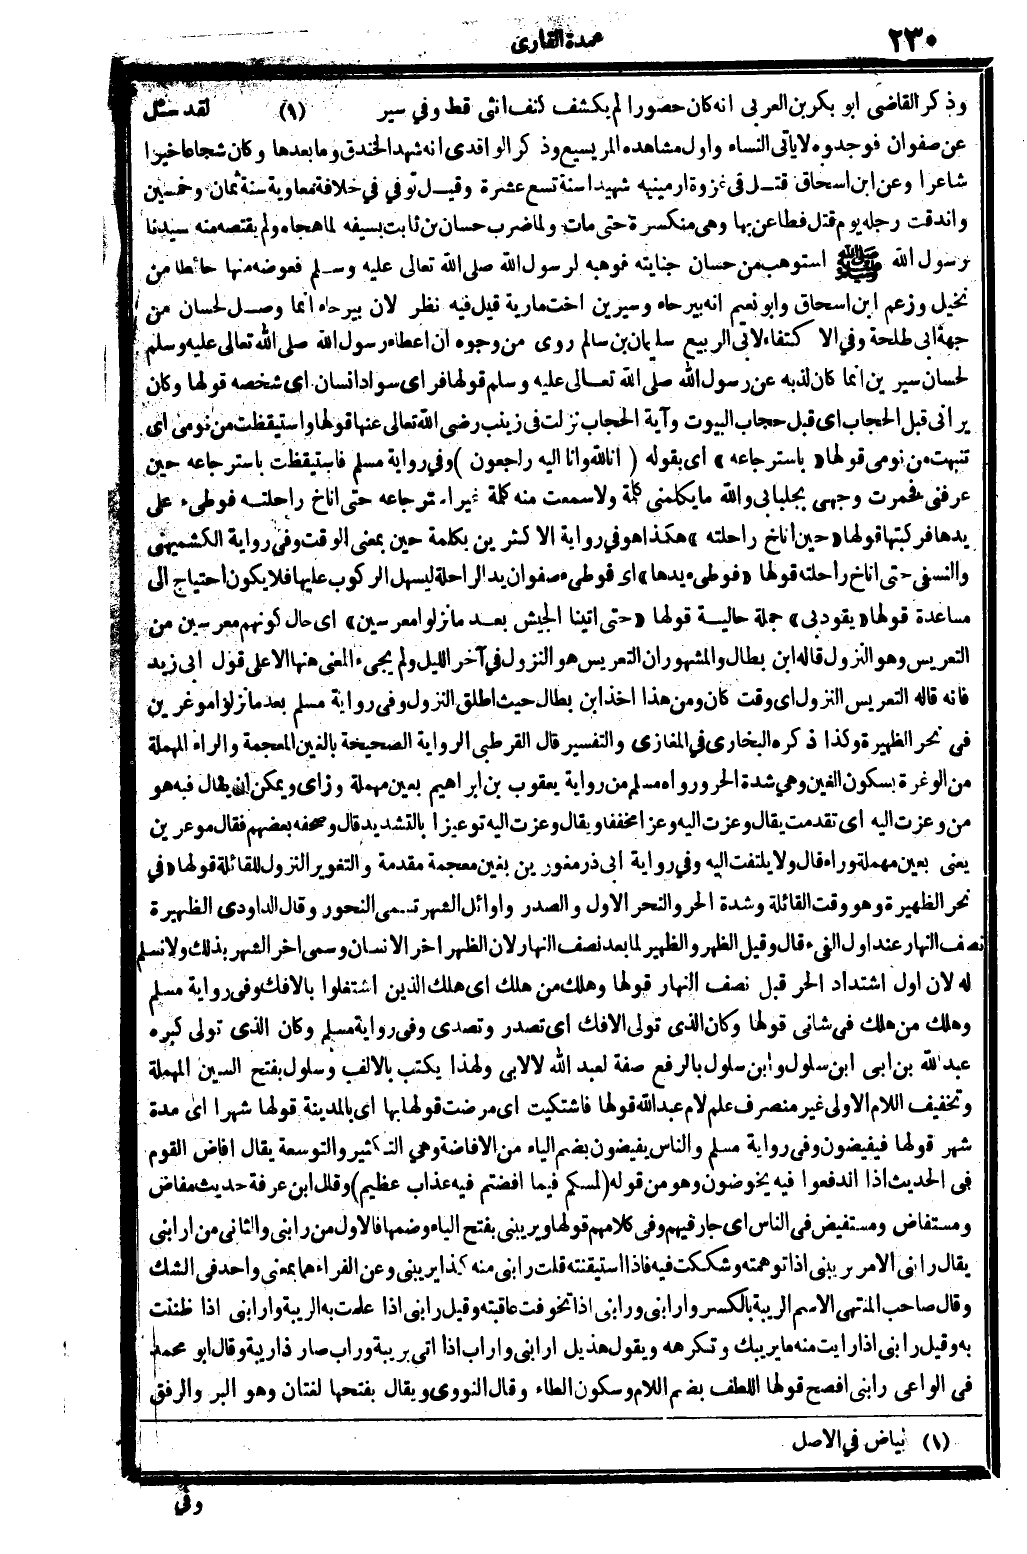 ٢٣٠
عمدة القارى
وذكر القاضى ابو بكر بن العربى انه كان حصورا لم يكشف كنف انثى قط وفي سير (١) لقد سئل
عن صفوان فوجدوه لا يأتى النساء واول مشاهده المريسيع وذكر الواقدى انه شهد الخندق وما بعدها وكان شجاعا خيرا
شاعرا وعن ابن اسحاق قتل فى غزوة ارمينيه شهيدا سنة تسع عشرة وقيل توفي في خلافة معاوية سنة ثمان وخمسين
واندقت رجله يوم قتل فطاعن بها وهى منكسرة حتى مات ولما ضرب حسان بن ثابت بسيفه لما هجاه ولم يقتصه منه سيدنا
رسول الله ﷺ استوهب من حسان جنايته فوهبه لرسول الله صلى الله تعالى عليه وسلم فعوضه منها حائطا من
نخيل وزعم ابن اسحاق وابو نعيم انه بيرحاء وسيرين اخت مارية قيل فيه نظر لان بيرحاء انما وصل لحسان من
جهة ابى طلحة وفي الاكتفاء لابى الربيع سليمان بن سالم روى من وجوه ان اعطاء رسول الله صلى الله تعالى عليه وسلم
لحسان سيرين انما كان لذبه عن رسول الله صلى الله تعالى عليه وسلم قولها فرأى سواد انسان اى شخصه قولها وكان
يرانى قبل الحجاب اى قبل حجاب البيوت وآية الحجاب نزلت فى زينب رضى الله تعالى عنها قولها واستيقظت من نومى اى
تنبهت من نومى قولها «باسترجاعه» اى بقوله ( انا لله وانا اليه راجعون ) وفي رواية مسلم فاستيقظت باسترجاعه حين
عرفنى فخمرت وجهى بجلبابى والله ما يكلمنى كلمة ولا سمعت منه كلمة غير استرجاعه حتى اناخ راحلته فوطىء على
يدها فركبتها قولها «حين اناخ راحلته» هكذا هو في رواية الاكثرين بكلمة حين بمعنى الوقت وفى رواية الكشميهنى
والنسفى حتى اناخ راحلته قولها «فوطىء يدها» اى فوطىء صفوان يد الراحلة ليسهل الركوب عليها فلا يكون احتياج الى
مساعدة قولها «يقود بى» جملة حالية قولها «حتى اتينا الجيش بعد ما نزلوا معرسين» اى حال كونهم معرسين من
التعريس وهو النزول قاله ابن بطال والمشهور ان التعريس هو النزول في آخر الليل ولم يجىء المعنى هنها الا على قول ابى زيد
فانه قاله التعريس النزول اى وقت كان ومن هذا اخذ ابن بطال حيث اطلق النزول وفى رواية مسلم بعد ما نزلوا موغرين
فى نحر الظهيرة وكذا ذكره البخارى في المغازى والتفسير قال القرطبى الرواية الصحيحة بالغين المعجمة والراء المهملة
من الوغرة بسكون الغين وهي شدة الحر ورواه مسلم من رواية يعقوب بن ابراهيم بعين مهملة وزاى ويمكن ان يقال فيه هو
من وعزت اليه اى تقدمت يقال وعزت اليه وعزا مخففا ويقال وعزت اليه توعيزا بالتشديد قال وصحفه بعضهم فقال موعرين
يعنى بعين مهملة وراء قال ولا يلتفت اليه وفي رواية ابى ذر مغورين بغين معجمة مقدمة والتغوير النزول للقائلة قولها «في
نحر الظهيرة وهو وقت القائلة وشدة الحر والنحر الاول والصدر واوائل الشهر تسمى النحور وقال الداودى الظهيرة
نصف النهار عند اول الفىء قال وقيل الظهر والظهير لما بعد نصف النهار لان الظهر اخر الانسان وسمى اخر الشهر بذلك ولا نسلم
له لان اول اشتداد الحر قبل نصف النهار قولها وهلك من هلك اى هلك الذين اشتغلوا بالافك وفى رواية مسلم
وهلك من هلك فى شانى قولها وكان الذى تولى الافك اى تصدر وتصدى وفى رواية مسلم وكان الذى تولى كبره
عبد الله بن ابى ابن سلول وابن سلول بالرفع صفة لعبد الله لا لابى ولهذا يكتب بالالف وسلول بفتح السين المهملة
وتخفيف اللام الاولى غير منصرف علم لام عبد الله قولها فاشتكيت اى مرضت قولها بها اى بالمدينة قولها شهرا اى مدة
شهر قولها فيفيضون وفى رواية مسلم والناس يفيضون بضم الياء من الافاضة وهي التكثير والتوسعة يقال افاض القوم
فى الحديث اذا اندفعوا فيه يخوضون وهو من قوله (لمسكم فيما افضتم فيه عذاب عظيم) وقال ابن عرفة حديث مفاض
ومستفاض ومستفيض فى الناس اى جار فيهم وفى كلامهم قولها ويريبنى بفتح الياء وضمها فالاول من رابنى والثانى من ارابنى
يقال رابنى الامر يريبنى اذا توهمته وشككت فيه فاذا استيقنته قلت رابنى منه كذا يريبنى وعن الفراء هما بمعنى واحد فى الشك
وقال صاحب المنتهى الاسم الريبة بالكسر وارابنى ورابنى اذا تخوفت عاقبته وقيل رابنى اذا علمت به الريبة وارابنى اذا ظننت
به وقيل رابنى اذا رايت منه ما يريبك وتكرهه ويقول هذيل ارابنى واراب اذا اتى بريبة وراب صار ذا ريبة وقال ابو محمد
فى الواعى رابنى افصح قولها اللطف بضم اللام وسكون الطاء وقال النووى ويقال بفتحها لغتان وهو البر والرفق
(١) بياض في الاصل
وفي